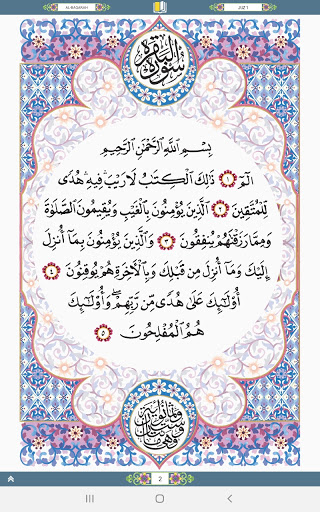 AL-BAQARAH
JUZ'1
سورة البقرة
بِسْمِ ٱللَّهِ ٱلرَّحْمَٰنِ ٱلرَّحِيمِ
الٓمٓ ١ ذَٰلِكَ ٱلْكِتَٰبُ لَا رَيْبَ ۛ فِيهِ ۛ هُدًى
لِّلْمُتَّقِينَ ٢ ٱلَّذِينَ يُؤْمِنُونَ بِٱلْغَيْبِ وَيُقِيمُونَ ٱلصَّلَوٰةَ
وَمِمَّا رَزَقْنَٰهُمْ يُنفِقُونَ ٣ وَٱلَّذِينَ يُؤْمِنُونَ بِمَآ أُنزِلَ
إِلَيْكَ وَمَآ أُنزِلَ مِن قَبْلِكَ وَبِٱلْءَاخِرَةِ هُمْ يُوقِنُونَ ٤
أُو۟لَٰٓئِكَ عَلَىٰ هُدًى مِّن رَّبِّهِمْ ۖ وَأُو۟لَٰٓئِكَ
هُمُ ٱلْمُفْلِحُونَ ٥
2